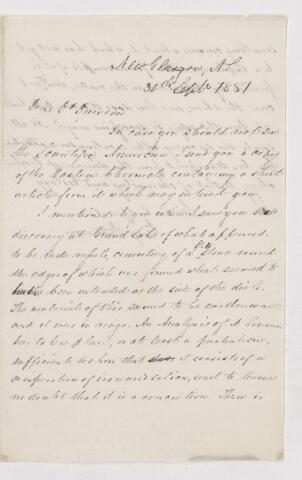 New Glasgow, N.S.
30th Sept 1881
Dear Dr Dawson
In case you should not see
the Scientific American I send you a copy
of the Eastern Chronicle containing a short
article from it which may interest you
I mentioned to you when I saw you the
discovery at Grand Lake of what appeared
to be rude vessels, consisting of a stone round
the edges of which was found what seemed to
have been intended as the side of the dish.
The material of this seemed to be earthenware
and it was in rings. An Analysis of it however
has taken place, or at least a partial one,
sufficient to show that it consists of a
composition of iron and silica, and to leave
no doubt that it is a concretion. There is